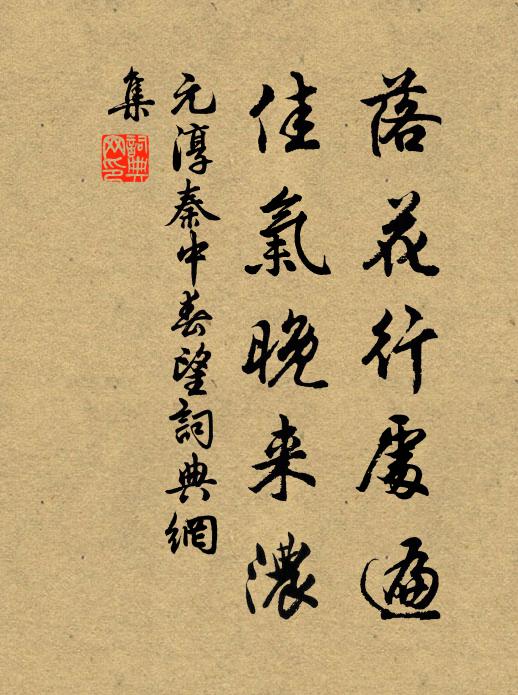 落花行處遍
佳氣晚来濃
元淳秦中春望詞典網
集
詞典网印